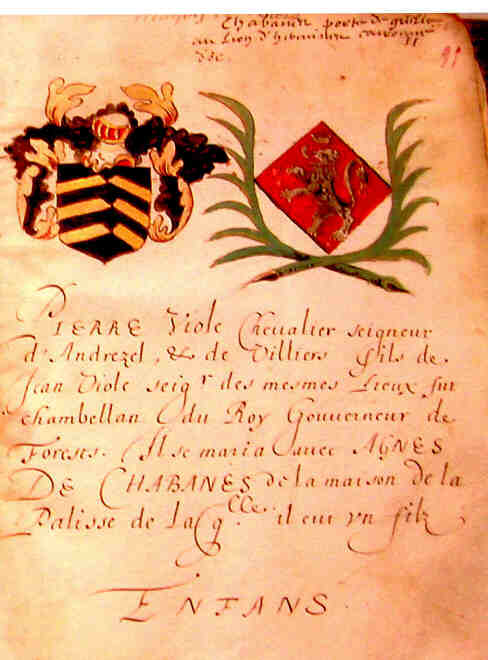 Chabanne porte de gueulle
au Lion d'
99
PIERRE Viole Chevalier seigneur
d'Andrezel, & de Villiers fils de
Jean Viole seigr des mesmes Lieux fut
chambellan du Roy Gouverneur de
Forests. Il se maria avec AGNES
DE CHABANES de la maison de la
Palisse de Lacqlle il eut vn filz
ENFANS.